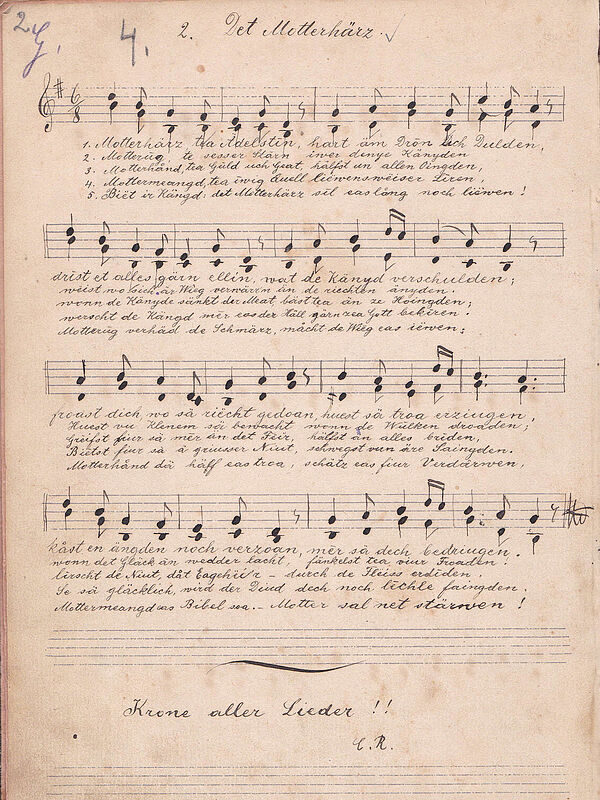 2 G. 4.
2. Det Motterhärz.
6/8
1. Motterhärz, tea Adelstin, hart äm Drön Dulden,
2. Motterug, te vesser Stärn iwer denye Känyden
3. Motterhånd, tea Guld uch Geat, hälfst un allen Oingden,
4. Mottermeangd, tea iwig Quell liewensweiser Liren,
5. Biet ir Kängd: det Motterhärz sil eas lång noch liewen!
drist et alles gärn ellin, wat de Känyd verschulden;
weist, wo sich är Wieg verwärrn än de riechten änyden.
wonn de Känyde sänkt der Meat, bäst tea än ze Hoingden;
werscht de Kängd mer eas der Häll gärn zea Gott bekiren.
Motterug verhäd de Schmärz, mächt de Wieg eas iewen;
froast dich, wo sä riecht gedoan, huest sä troa erziugen,
Huest vu Klenem sä bewacht wonn de Wulken droaden;
Greifst fiur sä mer än det Feir, hälfst än alles briden,
Bietst fiur sä ä griusser Niut, schwegst vun äre Saingden.
Motterhånd dä häff eas troa, schätz eas fiur Verdärwen,
kåst en ängden noch verzoan, mer sä dech bedriugen.
wonn det Gläck än wedder lacht, fankelst tea viur Froaden!
lirscht de Niut, dåt – durch de Fleiss erdiden.
Se sä gläcklich, wird der Diud dech noch liechle faingden.
Mottermeangd eas Bibel sea. – Motter sal net stärwen!
Krone aller Lieder!!
C. R.